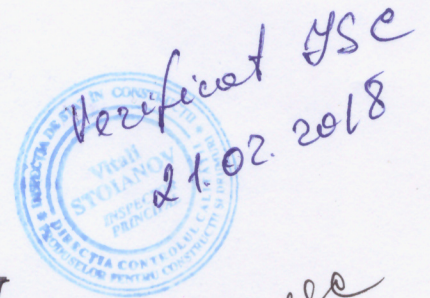 Verificat ISC
21.02.2018
INSPECȚIA DE STAT IN CONSTRUCȚII
Vitali
STOIANOV
INSPECTOR
PRINCIPAL
DIRECȚIA CONTROLUL
PRODUSELOR PENTRU CONSTRUCȚII